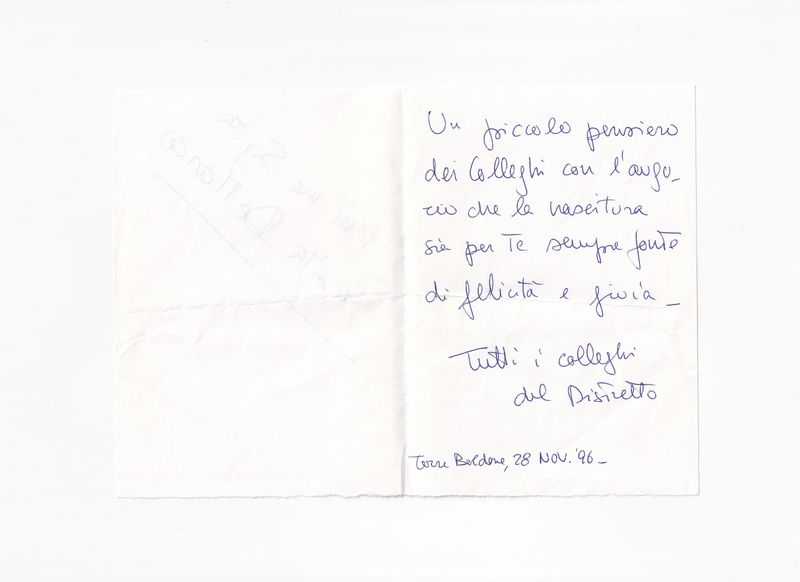 Un piccolo pensiero
dei Colleghi con l'augu_
rio che la nascitura
sia per Te sempre fonte
di felicità e gioia _
Tutti i colleghi
del Distretto
Torre Boldone, 28 NOV. '96 _
De Marco